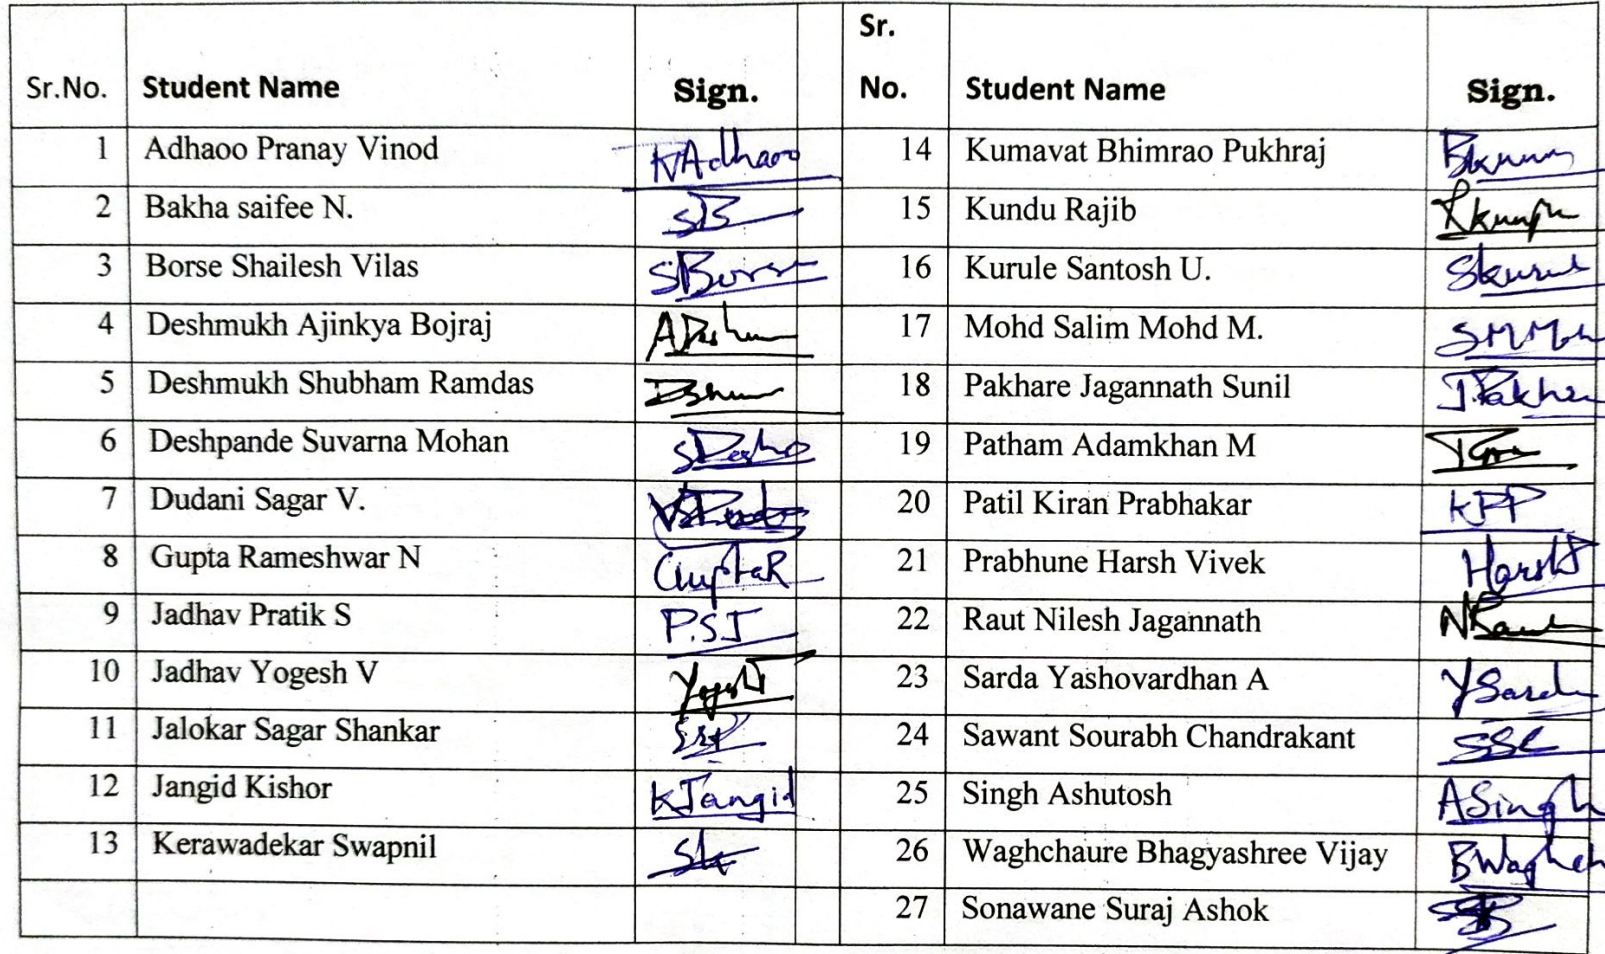 Sr.No. Student Name Sign. Sr. No. Student Name Sign.
1 Adhaoo Pranay Vinod 14 Kumavat Bhimrao Pukhraj
2 Bakha saifee N. SB 15 Kundu Rajib
3 Borse Shailesh Vilas SBorse 16 Kurule Santosh U.
4 Deshmukh Ajinkya Bojraj 17 Mohd Salim Mohd M.
5 Deshmukh Shubham Ramdas 18 Pakhare Jagannath Sunil
6 Deshpande Suvarna Mohan 19 Patham Adamkhan M
7 Dudani Sagar V. 20 Patil Kiran Prabhakar KPP
8 Gupta Rameshwar N GuptaR 21 Prabhune Harsh Vivek
9 Jadhav Pratik S P.SJ 22 Raut Nilesh Jagannath
10 Jadhav Yogesh V 23 Sarda Yashovardhan A
11 Jalokar Sagar Shankar 24 Sawant Sourabh Chandrakant SSC
12 Jangid Kishor KJangid 25 Singh Ashutosh ASingh
13 Kerawadekar Swapnil 26 Waghchaure Bhagyashree Vijay
27 Sonawane Suraj Ashok